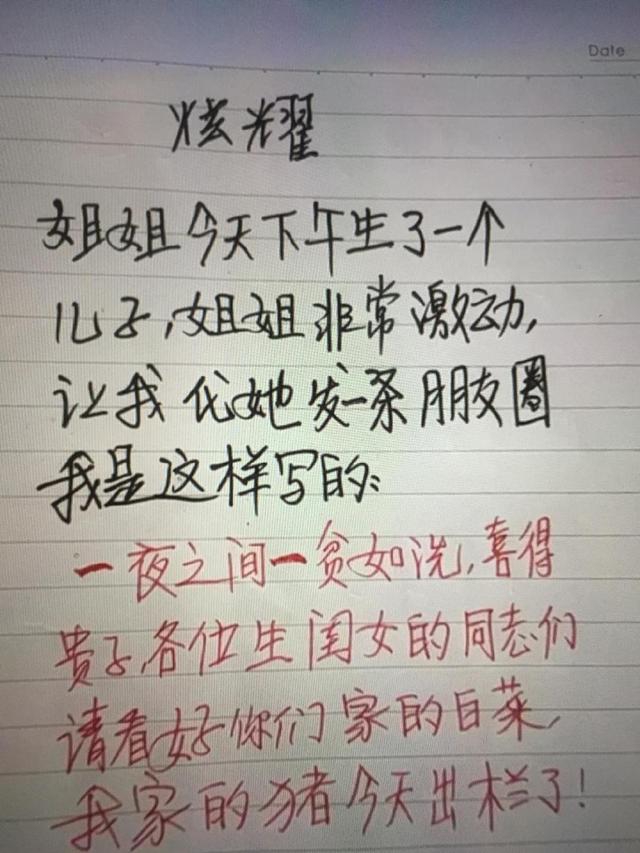 Date
炫耀
姐姐今天下午生了一个
儿子,姐姐非常激动,
让我代她发一条朋友圈
我是这样写的:
一夜之间一贫如洗,喜得
贵子,各位生闺女的同志们
请看好你们家的白菜,
我家的猪今天出栏了!